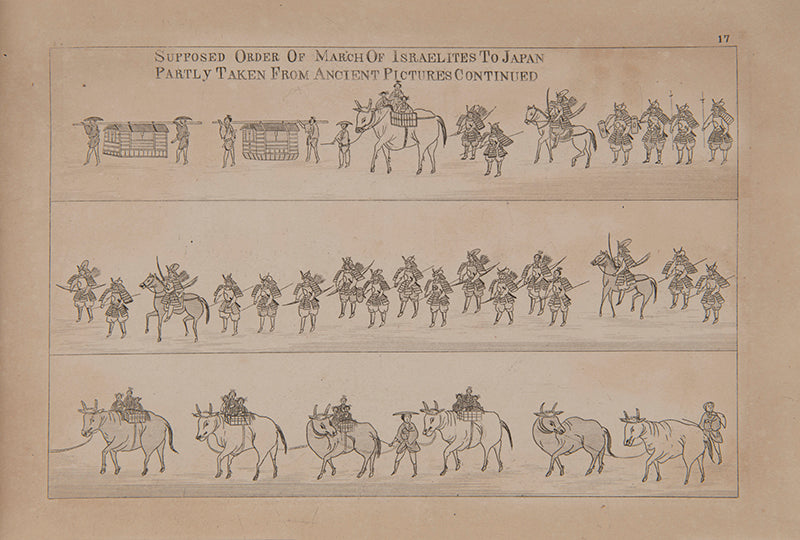 17
SUPPOSED ORDER OF MARCH OF ISRAELITES TO JAPAN
PARTLY TAKEN FROM ANCIENT PICTURES CONTINUED